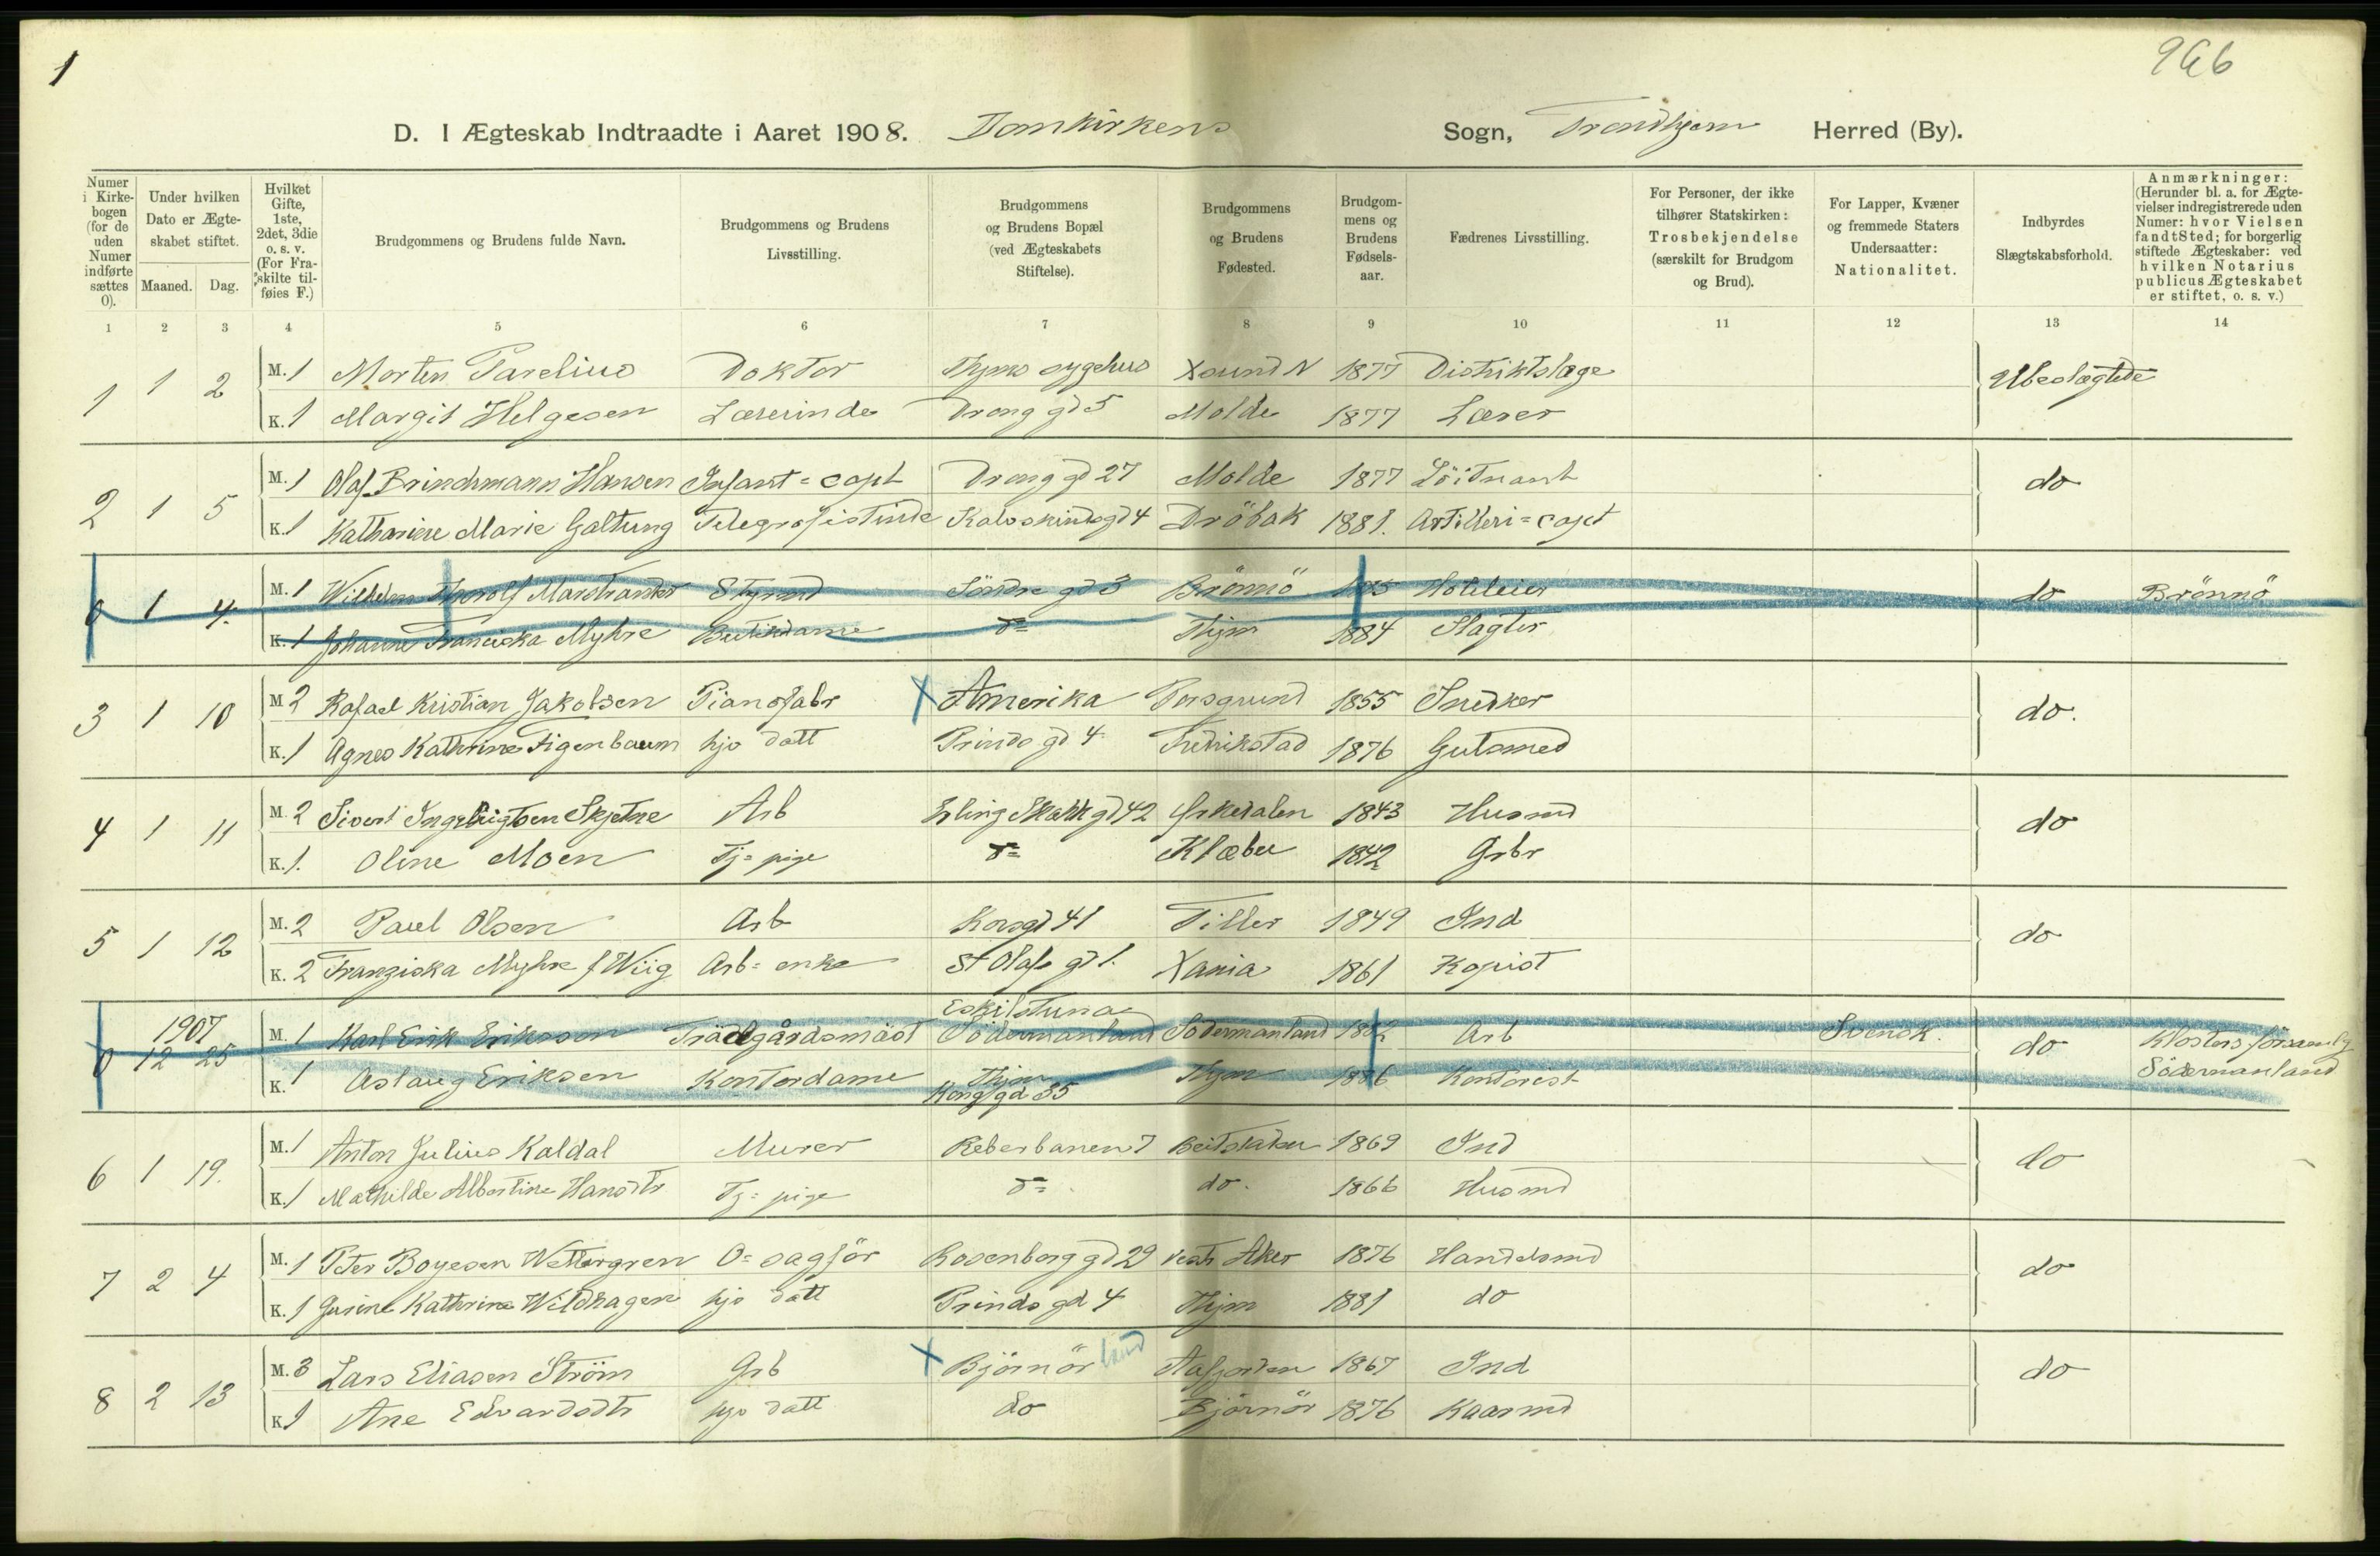 1
966
D. I Ægteskab Indtraadte i Aaret 1908. Domkirkens Sogn, Trondhjem Herred (By).
Numer i Kirkebogen (for de uden Numer indførte sættes 0).
Under hvilken Dato er Ægteskabet stiftet.
Maaned. Dag.
Hvilket Gifte, 1ste, 2det, 3die o. s. v. (For Fraskilte tilføies F.)
Brudgommens og Brudens fulde Navn.
Brudgommens og Brudens Livsstilling.
Brudgommens og Brudens Bopæl (ved Ægteskabets Stiftelse).
Brudgommens og Brudens Fødested.
Brudgommens og Brudens Fødselsaar.
Fædrenes Livsstilling.
For Personer, der ikke tilhører Statskirken: Trosbekjendelse (særskilt for Brudgom og Brud).
For Lapper, Kvæner og fremmede Staters Undersaatter: Nationalitet.
Indbyrdes Slægtskabsforhold.
Anmærkninger: (Herunder bl. a. for Ægtevielser indregistrerede uden Numer: hvor Vielsen fandt Sted; for borgerlig stiftede Ægteskaber: ved hvilken Notarius publicus Ægteskabet er stiftet, o. s. v.)
1 2 3 4 5 6 7 8 9 10 11 12 13 14
1 1 2 M. 1 Morten Parelius Doktor Thjms sygehus Xsund N 1877 Distriktslæge Ubeslægtede
K. 1 Margit Helgesen Lærerinde Drong gd 5 Molde 1877 Lærer
2 1 5 M. 1 Olaf Brinchmann Hansen Infant=capt Drong gd 27 Molde 1877 Löitnant do
K. 1 Katharine Marie Galtung Telegrafistinde Kalvskindsgd 4 Dröbak 1881. Artilleri=capt
0 1 4. M. 1 Wilhelm Thorolf Styrmd Söndre gd 3 Brönnö Hoteleier do Brönnö
K. 1 Johanne Franciska Myhre Butikdame do Thjm 1884 Slagter
3 1 10 M 2 Rafael Kristian Jakobsen Pianofabr X Amerika Porsgrund 1855 Snedker do.
K. 1 Agnes Kathrine Figenbaum hjs datt Prinds gd 4 Fredrikstad 1876 Gulsmed
4 1 11 M. 2 Sivert Ingebrigtsen Skjetne Arb Erling Skakk gd 42 Orkedalen 1843 Husmd do
K. 1. Oline Moen Tj=pige do Klæbu 1842 Grbr
5 1 12 M. 2 Paul Olsen Arb Korsgd 41 Tiller 1849 Ind do
K. 2 Franziska Myhre f Wiig Arb=enke St Olafs gd 1. Xania 1861 Kopist
1907
0 12 25 M. 1 Karl Erik Eriksson Trädgårdsmäst Eskilstuna Södermanland Södermanland Arb Svensk. do Klosters församlg Södermanland
K. 1 Aslaug Eriksen Kontordame Thjm Kongsgd 85 Thjm 1886 Kontorist
6 1 19. M. 1 Anton Julius Kaldal Murer Reberbanen 7 Beitstaden 1869 Ind do
K. 1 Mathilde Albertine Hansdtr Tj=pige do do. 1866 Husmd
7 2 4 M. 1 Peter Boyesen Wettergren O=sagför Rosenborg gd 29 vestr Aker 1876 Handelsmd do
K. 1 Jusine Kathrine Wildhagen hjs datt Prinds gd 4 Thjm 1881 do
8 2 13 M. 3 Lars Eliasen Ström Grb X Björnör land Aafjorden 1867 Ind do
K 1 Ane Edvardsdtr hjs datt do Björnör 1876 Kaarmd